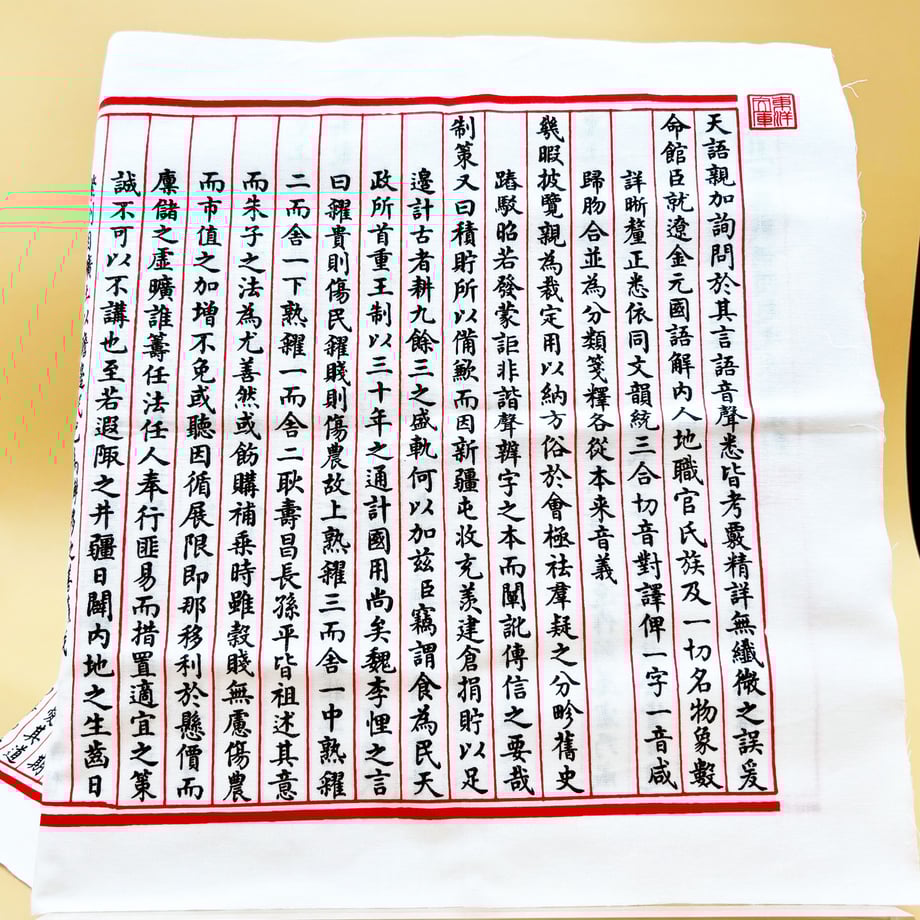 東洋文庫
天語親加詢問於其言語音聲悉皆考覈精詳無纖微之誤爰
命館臣就遼金元國語解內人地職官氏族及一切名物象數
詳晰釐正悉依同文韻統三合切音對譯俾一字一音咸
歸脗合並為分類箋釋各從本來音義
幾暇披覽親為裁定用以納方俗於會極祛羣疑之分畛舊史
踳駮昭若發蒙詎非諧聲辨字之本而闡訛傳信之要哉
制策又曰積貯所以備歉而因新疆屯收充羨建倉捐貯以足
邊計古者耕九餘三之盛軌何以加茲臣竊謂食為民天
政所首重王制以三十年之通計國用尚矣魏李悝之言
曰糴貴則傷民糴賤則傷農故上熟糴三而舍一中熟糴
二而舍一下熟糴一而舍二耿壽昌長孫平皆祖述其意
而朱子之法為尤善然或飭購補乗時雖穀賤無慮傷農
而市值之加增不免或聽因循展限即那移利於懸價而
廩儲之虛曠誰籌任法任人奉行匪易而措置適宜之策
誠不可以不講也至若遐陬之井疆日闢內地之生齒日